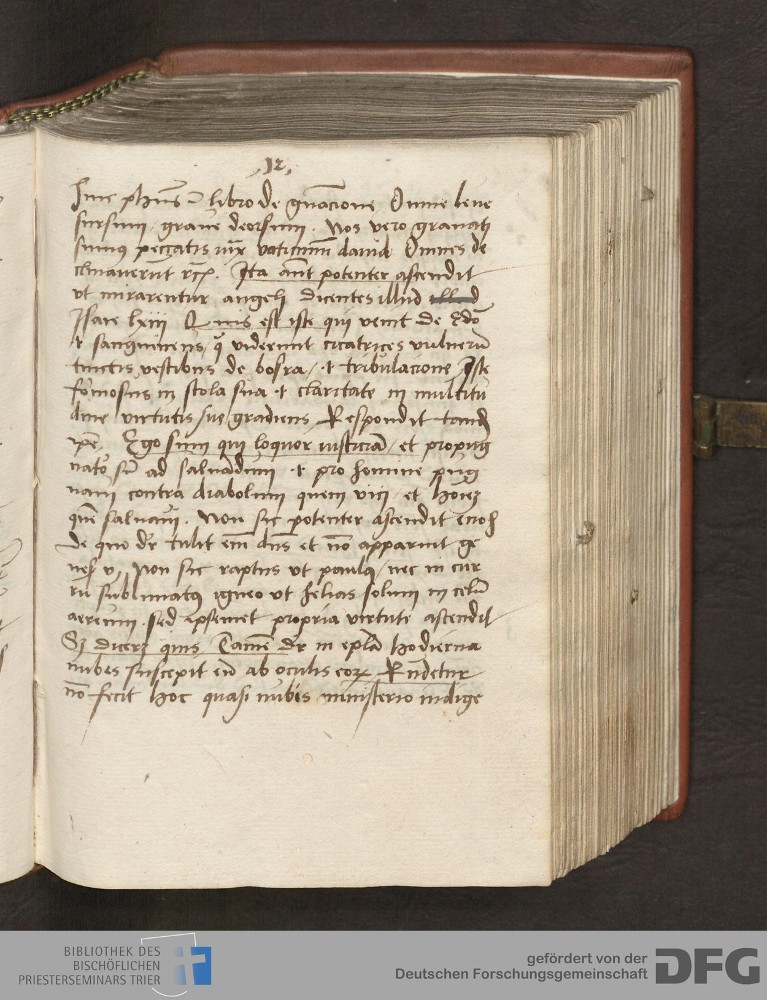 12
phūs libro de gnācione Omne leve
sursum grave deorsum. Nos vero gravati
sumus peccatis iux vaticinium david Omnes de
clinaverūt rc. Ita aūt potenter ascendit
ut mirarentur angeli dicentes illud
Isaie lxiii Quis est iste qui venit de edō
i sanguineus, qͣ viderunt cicatrices vulnerū
tinctis vestibus de bosra, i tribulacione Iste
formosus in stola sua i claritate in multitu
dine virtutis sue gradiens Respondit
ipē. Ego sum qui loquor iusticiā, et propug
nator sū ad salvādum i pro homine pug
navi contra diabolum quem vici, et hoīez
quē salvavi. Non sic potenter ascendit enoch
de quo dr tulit eum dns et nō apparuit ge
nes v, Non sic raptus ut paulus, nec in cur
ru sublimatus igneo ut helias solum in celū
aereum, sed ipsemet propria virtute ascendit
Sz diceret quis Tamē dr in eplā hodierna
nubes suscepit eū ab oculis eorum Rndetur
nō fecit hoc quasi nubis ministerio indige
BIBLIOTHEK DES
BISCHÖFLICHEN
PRIESTERSEMINARS TRIER
gefördert von der
Deutschen Forschungsgemeinschaft
DFG